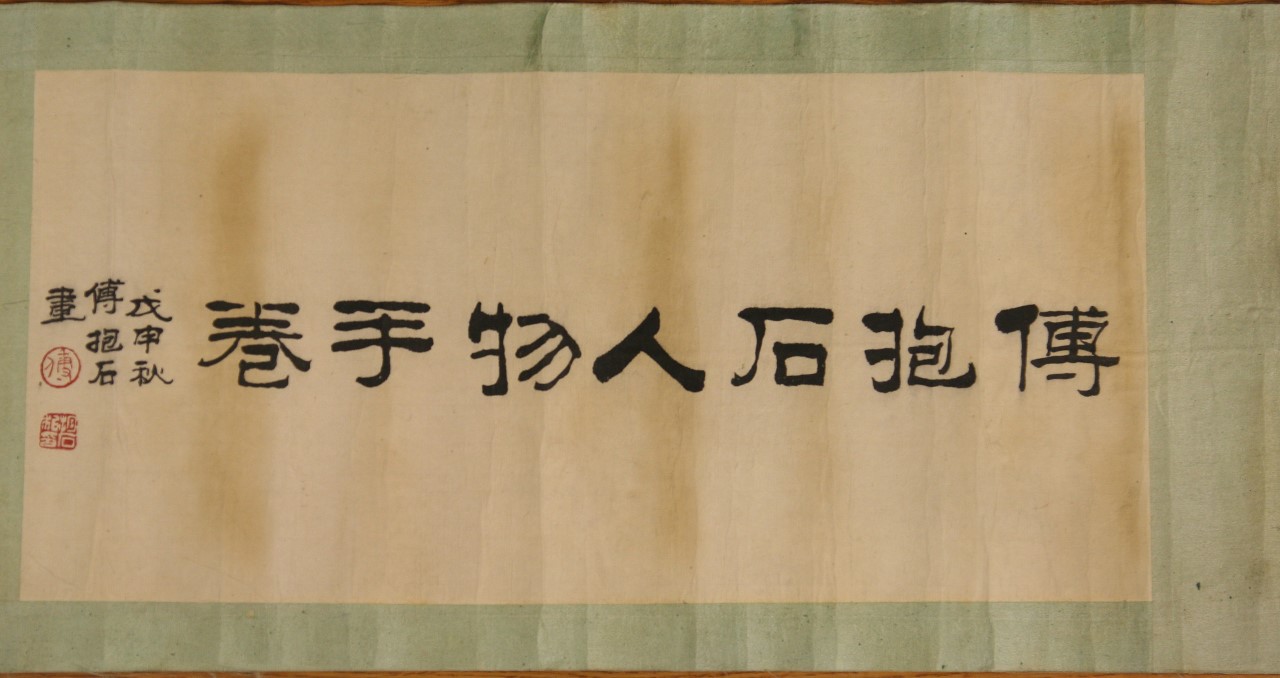 傅抱石人物手卷
戊申秋
傅抱石
畫
傅